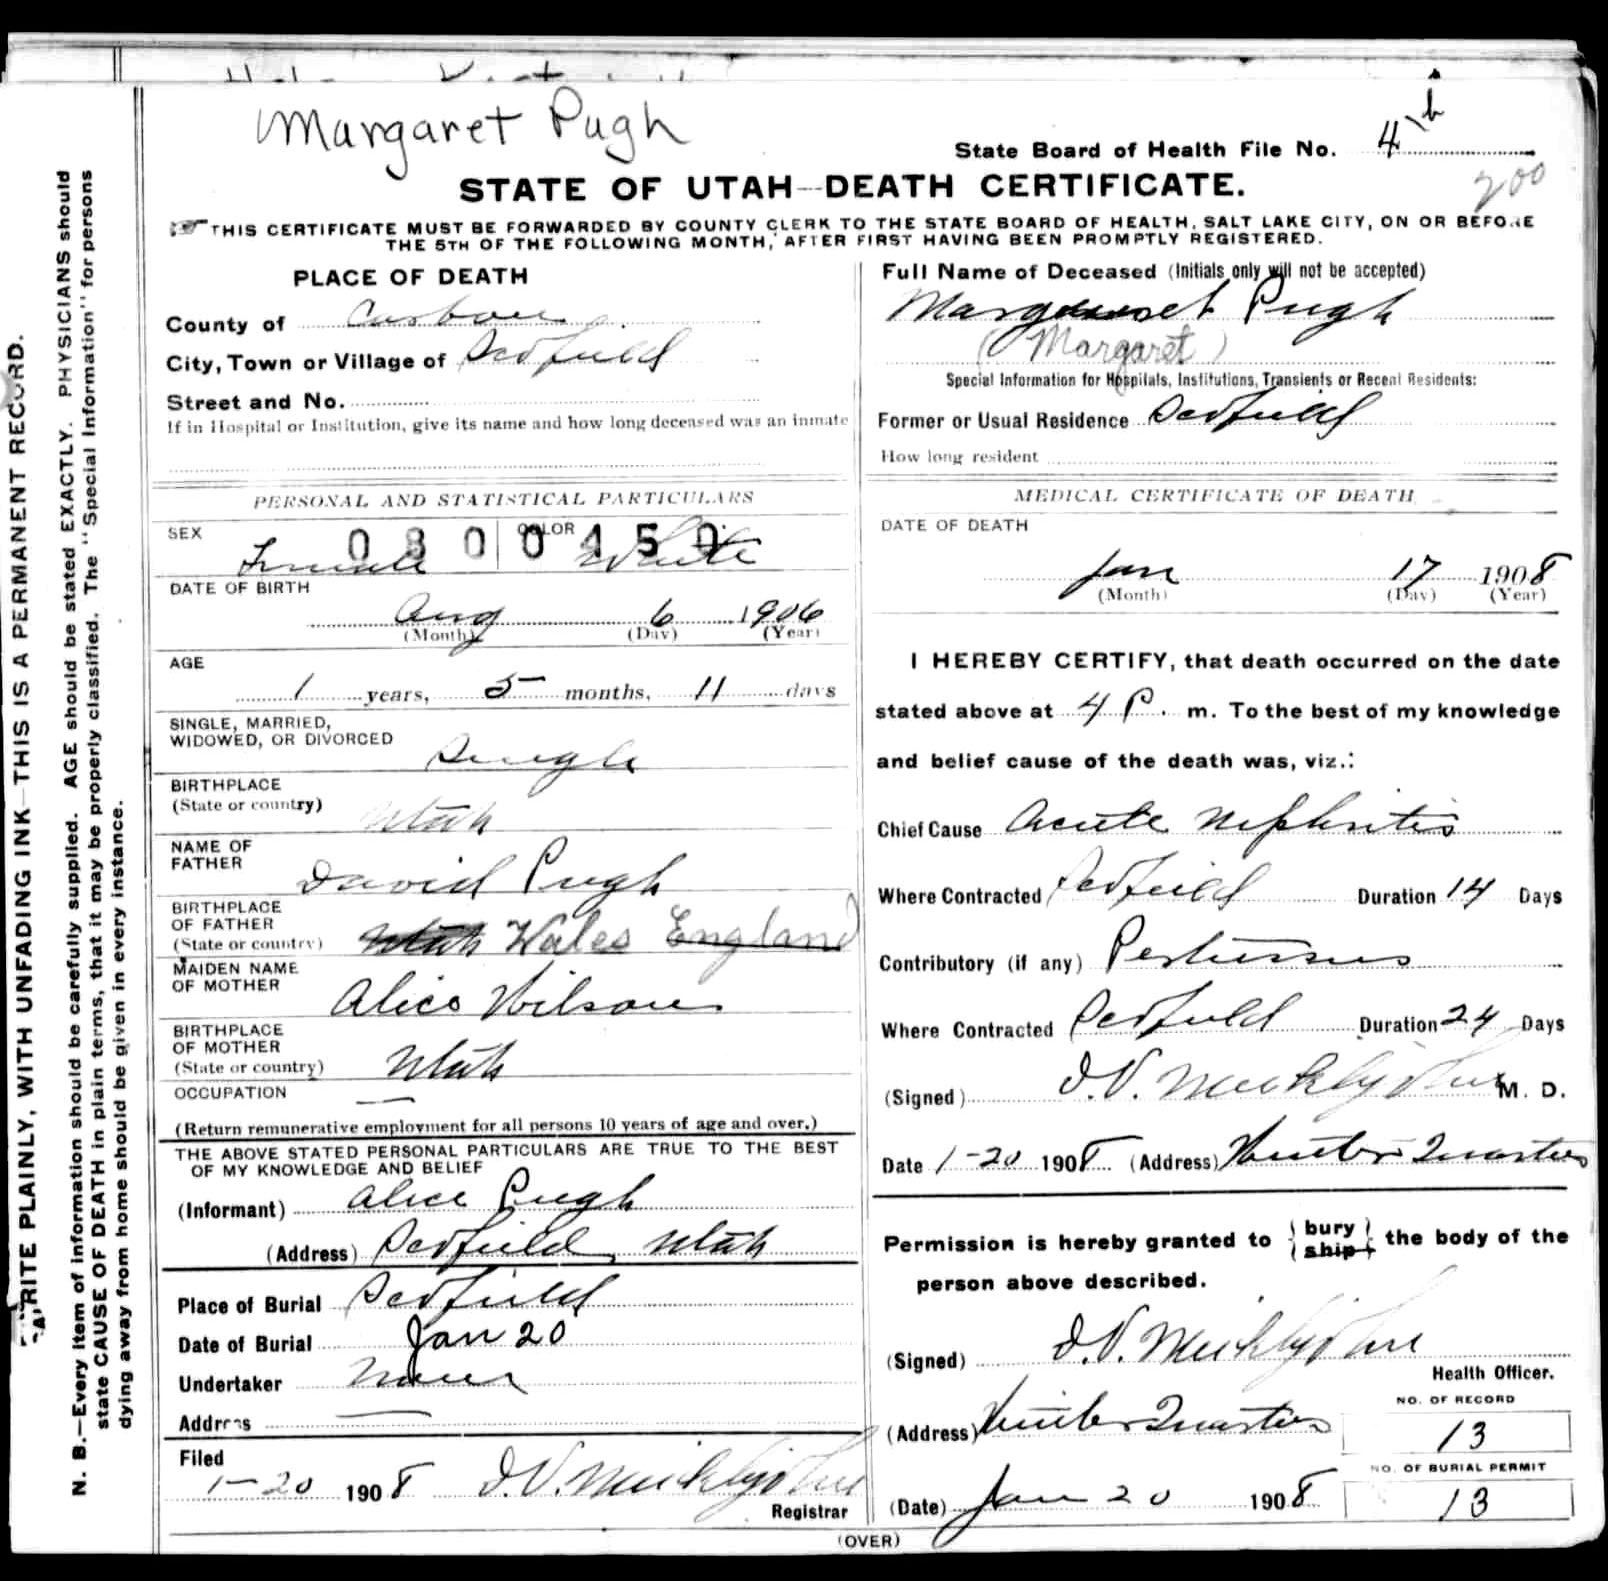 Margaret Pugh
State Board of Health File No. 4
200
STATE OF UTAH—DEATH CERTIFICATE.
THIS CERTIFICATE MUST BE FORWARDED BY COUNTY CLERK TO THE STATE BOARD OF HEALTH, SALT LAKE CITY, ON OR BEFORE
THE 5TH OF THE FOLLOWING MONTH, AFTER FIRST HAVING BEEN PROMPTLY REGISTERED.
PLACE OF DEATH
County of Carbon
City, Town or Village of Scofield
Street and No.
If in Hospital or Institution, give its name and how long deceased was an inmate
PERSONAL AND STATISTICAL PARTICULARS
SEX Female COLOR White
0300450
DATE OF BIRTH
Aug 6 1906
(Month) (Day) (Year)
AGE
1 years, 5 months, 11 days
SINGLE, MARRIED,
WIDOWED, OR DIVORCED Single
BIRTHPLACE
(State or country) Utah
NAME OF
FATHER David Pugh
BIRTHPLACE
OF FATHER
(State or country) Utah Wales England
MAIDEN NAME
OF MOTHER Alice Wilson
BIRTHPLACE
OF MOTHER
(State or country) Utah
OCCUPATION —
(Return remunerative employment for all persons 10 years of age and over.)
THE ABOVE STATED PERSONAL PARTICULARS ARE TRUE TO THE BEST
OF MY KNOWLEDGE AND BELIEF
(Informant) Alice Pugh
(Address) Scofield, Utah
Place of Burial Scofield
Date of Burial Jan 20
Undertaker None
Address —
Filed
1-20 1908
Registrar
Full Name of Deceased (Initials only will not be accepted)
Margaret Pugh
(Margaret)
Special Information for Hospitals, Institutions, Transients or Recent Residents:
Former or Usual Residence Scofield
How long resident
MEDICAL CERTIFICATE OF DEATH
DATE OF DEATH
Jan 17 1908
(Month) (Day) (Year)
I HEREBY CERTIFY, that death occurred on the date
stated above at 4 P. m. To the best of my knowledge
and belief cause of the death was, viz.:
Chief Cause Acute Nephritis
Where Contracted Scofield Duration 14 Days
Contributory (if any) Pertussus
Where Contracted Scofield Duration 24 Days
(Signed) M. D.
Date 1-20 1908 (Address) Winter Quarters
Permission is hereby granted to { bury / ship } the body of the
person above described.
(Signed)
Health Officer.
(Address) Winter Quarters
NO. OF RECORD
13
NO. OF BURIAL PERMIT
13
(Date) Jan 20 1908
(OVER)
WRITE PLAINLY, WITH UNFADING INK—THIS IS A PERMANENT RECORD.
N. B.—Every item of information should be carefully supplied. AGE should be stated EXACTLY. PHYSICIANS should
state CAUSE OF DEATH in plain terms, that it may be properly classified. The "Special Information" for persons
dying away from home should be given in every instance.